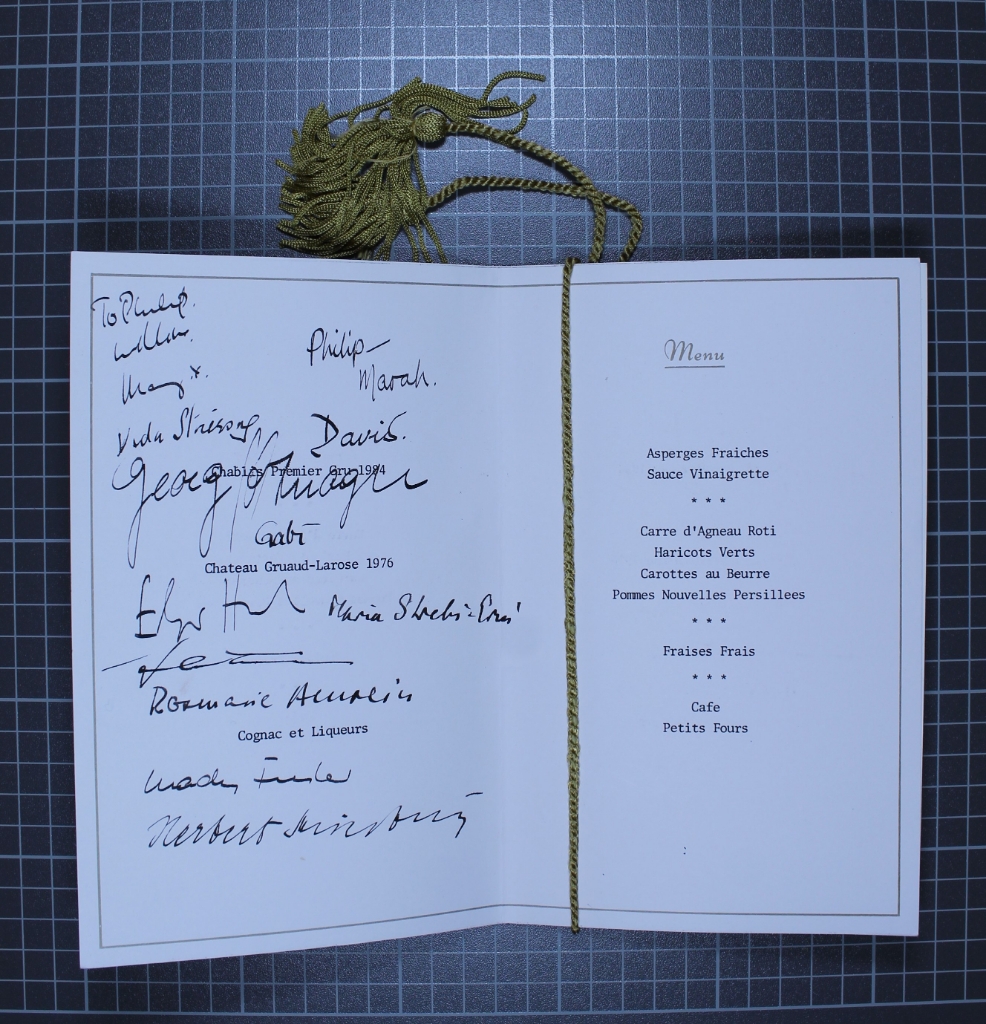 To Philip.
Philip
Marah.
Vida
David.
Chablis Premier Cru 1984
Georg
Gabi
Chateau Gruaud-Larose 1976
Maria
Rosmarie
Cognac et Liqueurs
Herbert
Menu
Asperges Fraiches
Sauce Vinaigrette
* * *
Carre d'Agneau Roti
Haricots Verts
Carottes au Beurre
Pommes Nouvelles Persillees
* * *
Fraises Frais
* * *
Cafe
Petits Fours